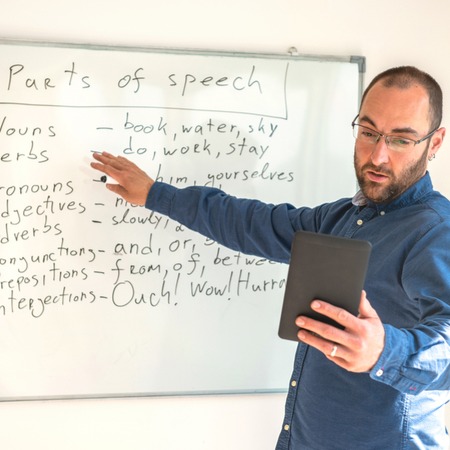 Parts of speech
Nouns – book, water, sky
Verbs – do, work, stay
Pronouns – him, yourselves
Adjectives –
Adverbs – slowly,
Conjunctions – and, or,
Prepositions – from, of, between
Interjections – Ouch! Wow! Hurra